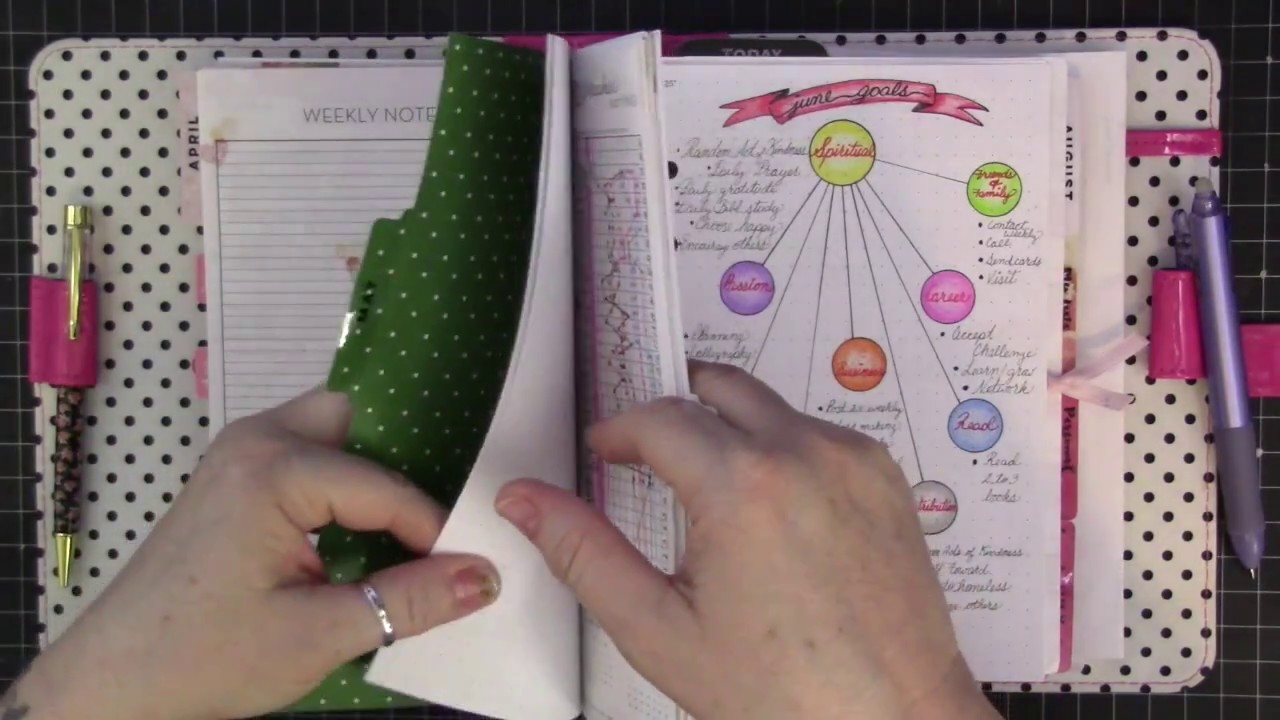 TODAY
WEEKLY NOTE
APRIL
june goals
Spiritual
• Random Act of Kindness
• Daily Prayer
• Daily gratitude
• Daily Bibl study
• Choose happy
• Encourag others
Friends
&
Family
• Contact
weekly
• Call
• Send cards
• Visit
AUGUST
Passion
Career
• Planning
• Calligraphy
• Accept
Challenge
• Learn/grow
• Network
Business
• Post six weekly
making
Read
• Read
2 to 3
books
Personal
Acts of Kindness
Forward
to homeless
others